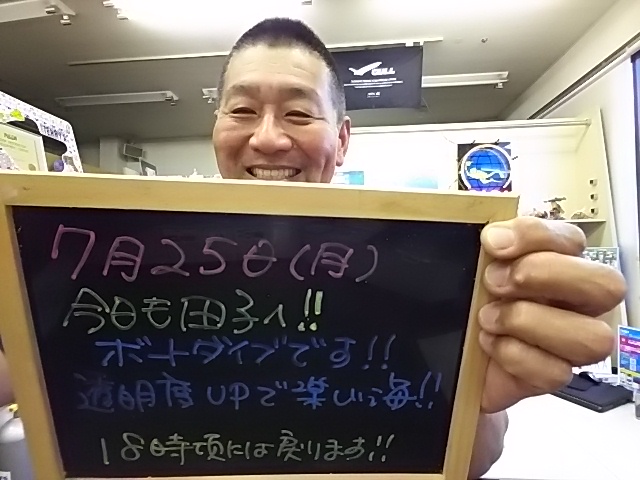 GULL
7月25日(月)
今日も田子へ!!
ボートダイブです!!
透明度UPで楽しい海!!
18時頃には戻ります!!